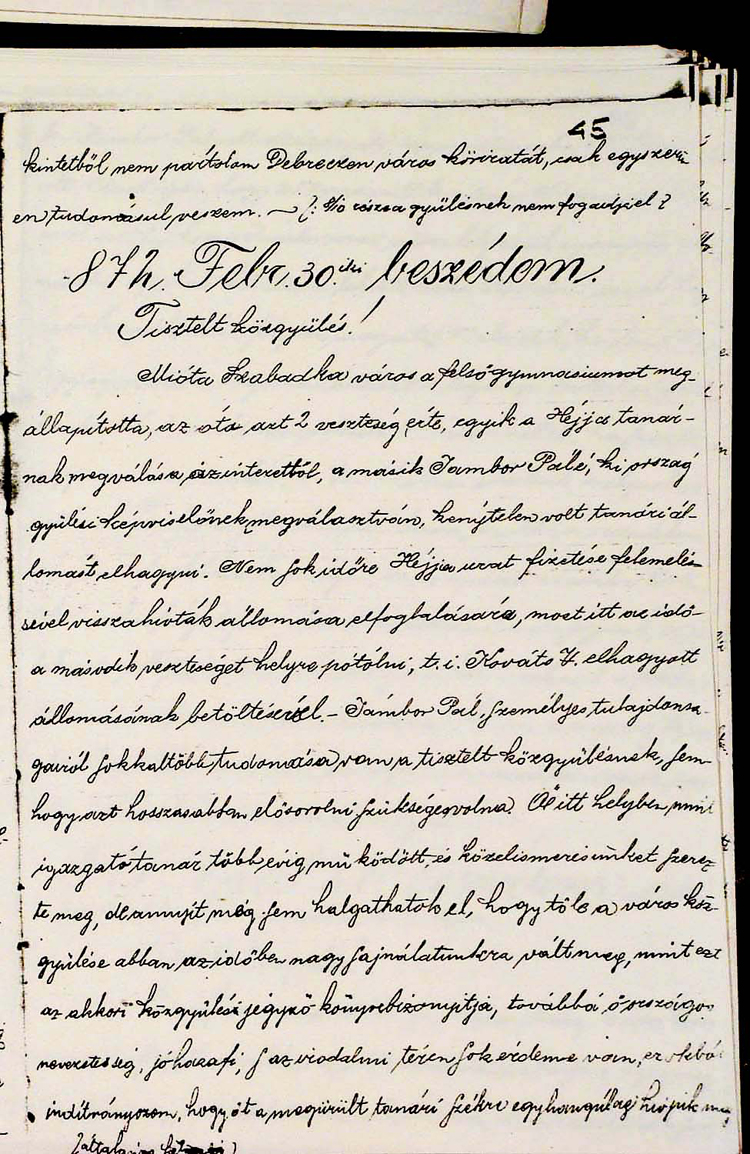 45
kintetből nem pártolom Debreczen város köriratát, csak egyszerü
en tudomásul veszem. — /: Jó része a gyülésnek nem fogadja el?
-872. Febr. 30.iki beszédem.
Tisztelt közgyülés!
Mióta Szabadka város a felsőgymnasiumot meg-
állapította, az óta azt 2 veszteség érte, egyik a Héjja tanár-
nak megválása az intezettől, a másik Jambor Pálé, ki ország
gyülési képviselőnek megválasztván, kénytelen volt tanári ál-
lomást elhagyni. Nem sok időre Héjja urat fizetése felemelés-
sével visszahivták állomása elfoglalására, most itt az idő-
a második veszteséget helyre pótolni, t. i. Kováts J. elhagyott
állomásának betöltésével. - Jámbor Pál, személyes tulajdonsá-
gairól sokkal több tudomása van a tisztelt közgyülésnek, sem-
hogy azt hosszasabban elősorolni szükséges volna. Ő itt helyben mint
igazgató tanár több évig müködött, és közelismerésünket szerez-
te meg, de annyit még sem halgathatok el, hogy tőle a város köz-
gyülése abban az időben nagy sajnálatunkra vált meg, mint ezt
az akkori közgyülési jegyző könyv bizonyitja, továbbá ő országos
nevezetesség, jó hazafi, s az irodalmi téren sok érdeme van, ez okból
inditványozom, hogy őt a megürült tanári székre egyhangúlag hivjuk meg
/:általános